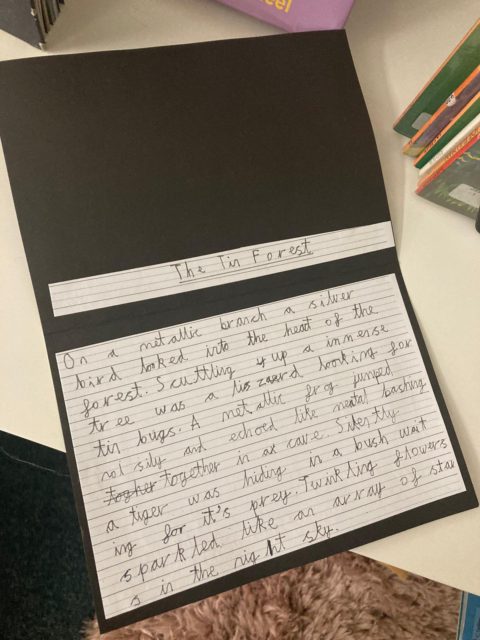 eel
The Tin Forest
On a metallic branch a silver
bird looked into the heat of the
forest. Scuttling up a imense
tree was a lizzard looking for
tin bugs. A metallic frog jumped
noisily and echoed like metal bashing
togher together in a cave. Silently
a tiger was hiding in a bush wait
ing for it's prey. Twinkling flowers
sparkled like an array of star
s in the night sky.